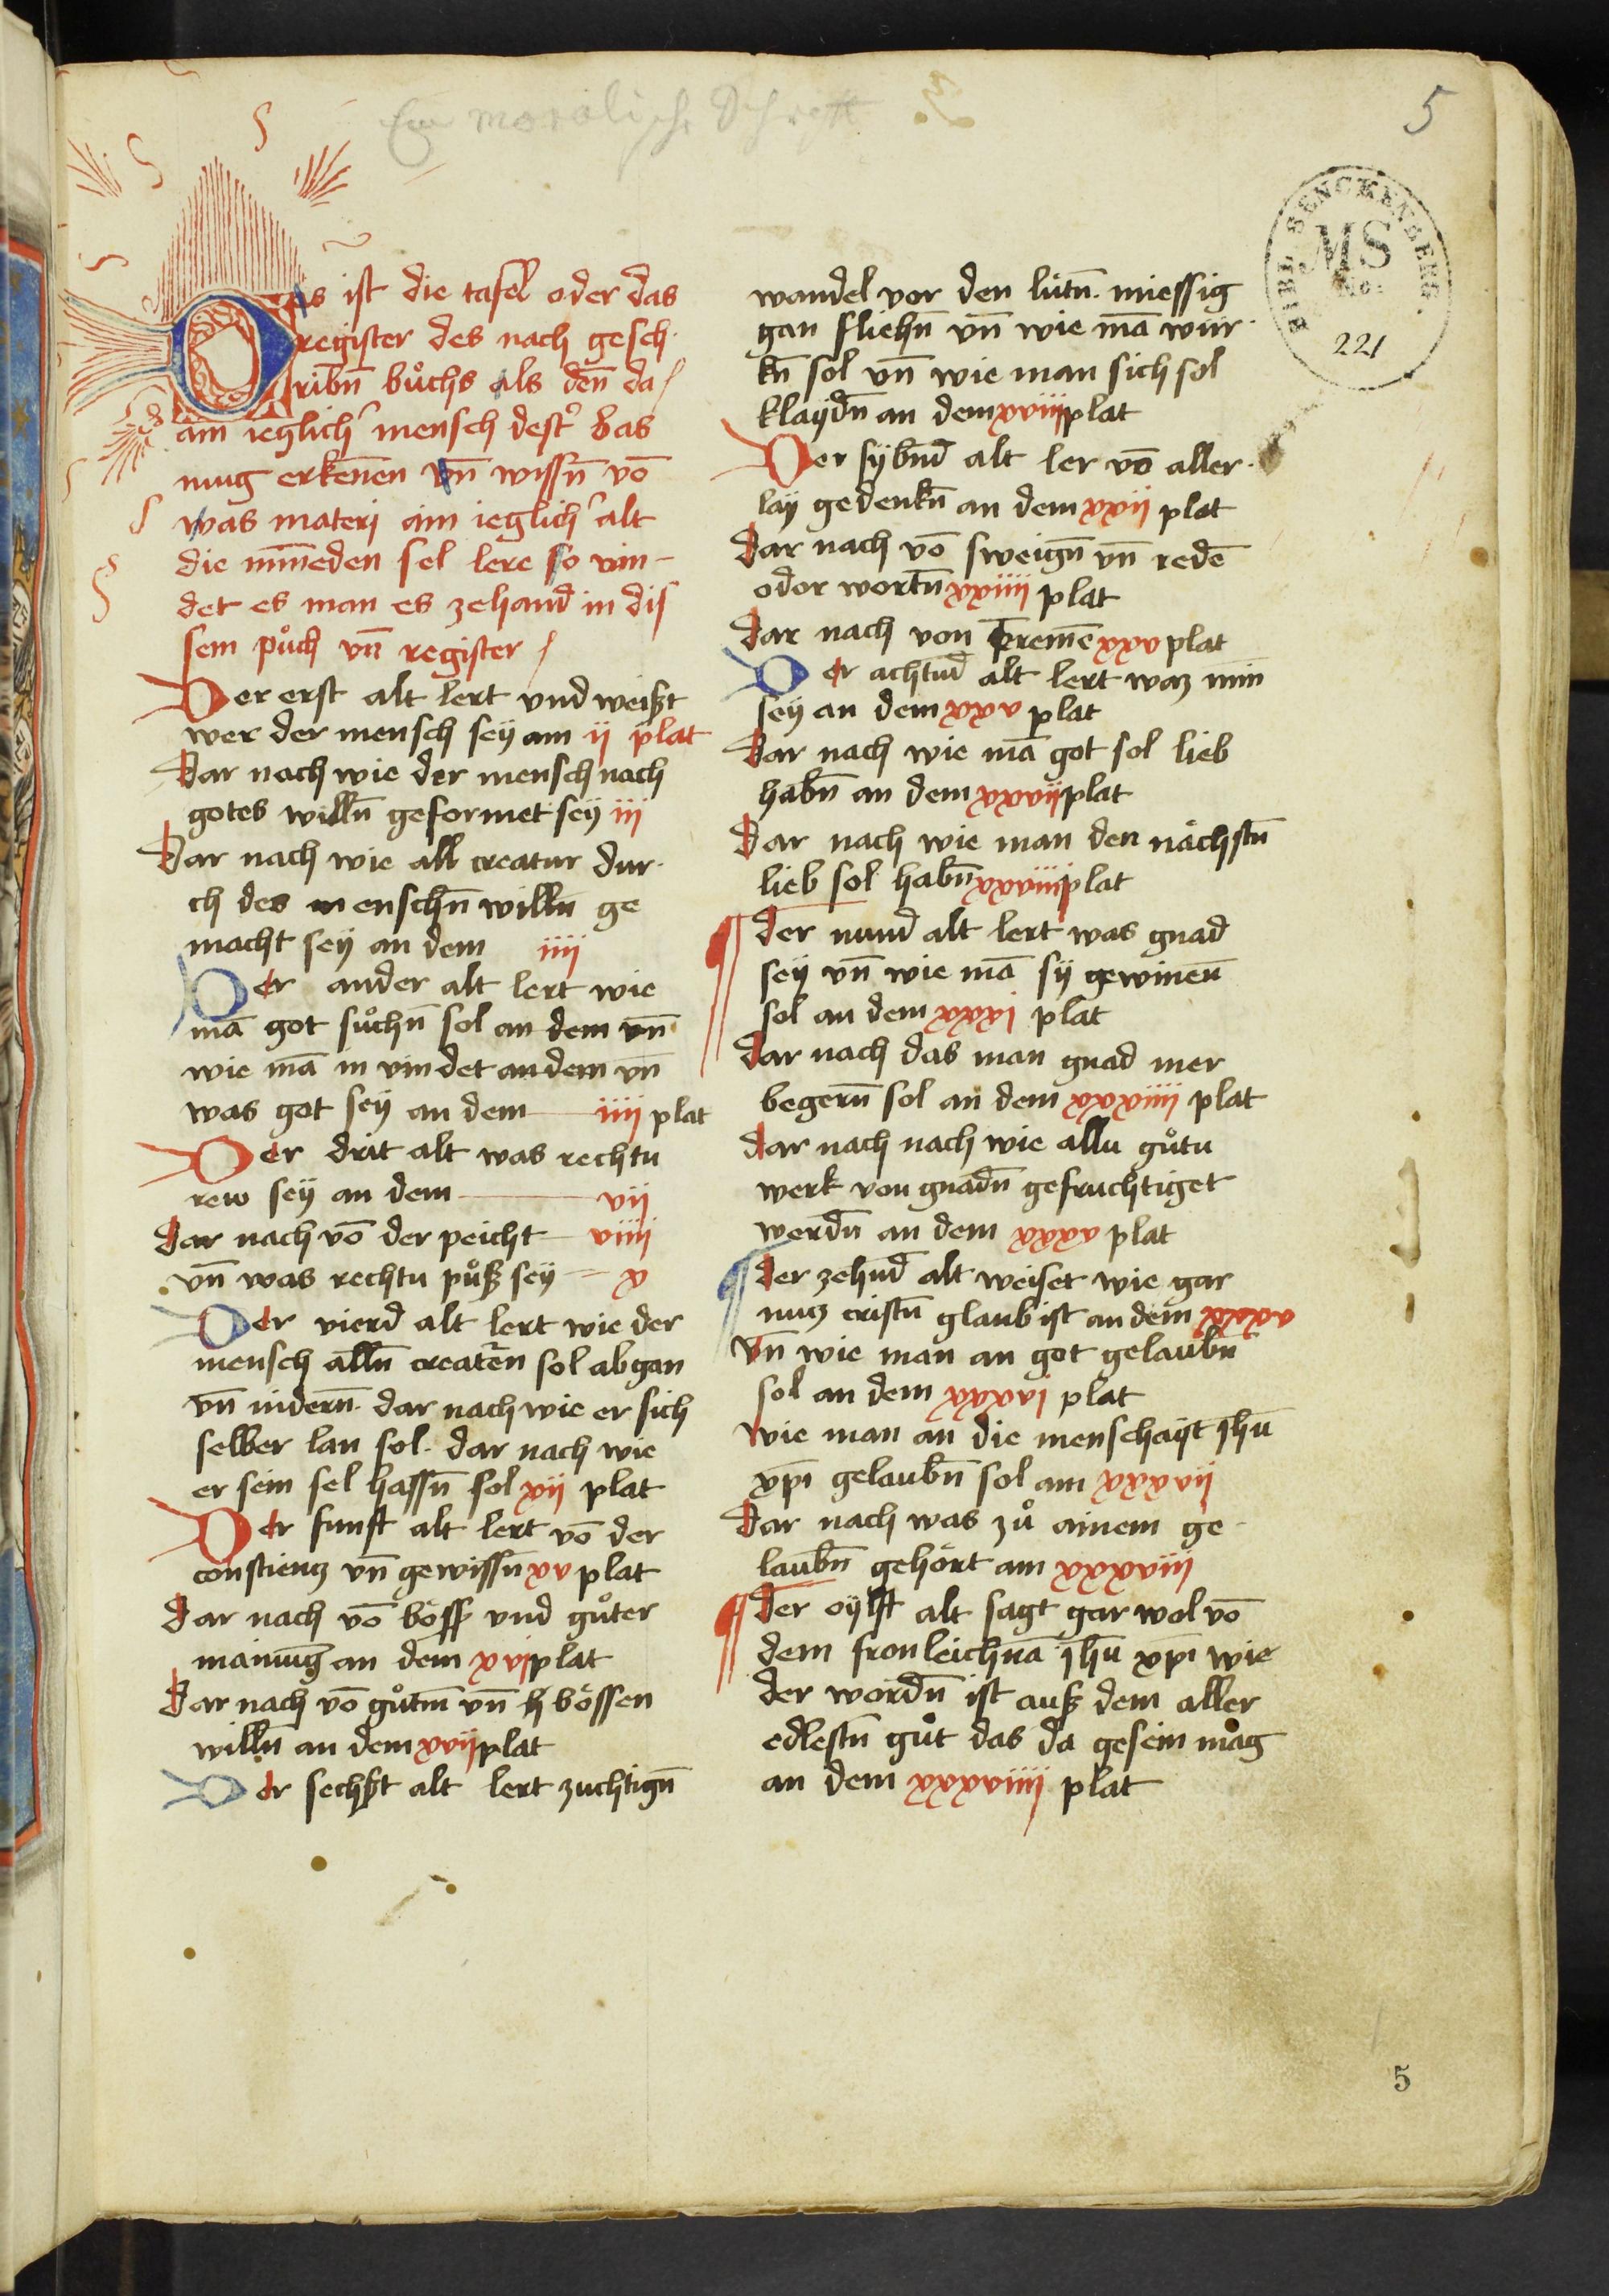 Ein moralische Schrifft
5
BIBL. SENCKENBERG.
MS
No:
221
Das ist die tafel oder das
register des nach gesch
ribn̄ bůchs als den̄ da
ain ieglich' mensch dest' bas
mug erken̄en vn̄ wissn̄ vō
was materj ain ieglich' alt
die min̄eden sel lere so vin
det es man es zehand in dis
sem půch vn̄ register
Der erst alt lert vnd weißt
wer der mensch seÿ am ij plat
Dar nach wie der mensch nach
gotes willn̄ geformet seÿ iij
Dar nach wie all creatur dur
ch des menschn̄ willn̄ ge
macht seÿ an dem iiij
Der ander alt lert wie
mā got sůchn̄ sol an dem vn̄
wie mā in vindet an dem vn̄
was got seÿ an dem iiij plat
Der drit alt was rechtu
rew seÿ an dem vij
Dar nach vō der peicht viiij
vn̄ was rechtu půß seÿ x
Der vierd alt lert wie der
mensch alln̄ creatēn sol abgan
vn̄ nidern̄. dar nach wie er sich
selber lan sol. dar nach wie
er sein sel hassn̄ sol xij plat
Der funft alt lert vō der
constienz vn̄ gewissn̄ xv plat
Dar nach vō böss und gůter
mainūg an dem xvj plat
Dar nach vō gůtm̄ vn̄ bössen
willn̄ an dem xvij plat
Der sechßt alt lert zuchtign̄
wandel vor den lütn̄. miessig
gan fliehn̄ vn̄ wie mā wür
kn̄ sol vn̄ wie man sich sol
klaÿdn̄ an dem xviiij plat
Der sÿbn̄d alt ler vō aller
laÿ gedenkn̄ an dem xxij plat
Dar nach vō sweign̄ vn̄ redē
odor wortn̄ xxiiij plat
Dar nach von tremē xxxv plat
Der achtud alt lert waz min̄
seÿ an dem xxxv plat
Dar nach wie mā got sol lieb
habn̄ an dem xxxvij plat
Dar nach wie man den nächstn̄
lieb sol habn̄ xxxviiij plat
Der nund alt lert was gnad
seÿ vn̄ wie mā sÿ gewinen̄
sol an dem xxxxj plat
Dar nach das man gnad mer
begern̄ sol an dem xxxxiiij plat
Dar nach nach wie allu gůtu
werk von gnadn̄ gefruchtiget
werdn̄ an dem xxxxv plat
Der zehnd alt weiset wie gar
nutz cristn̄ glaub ist an dem
Vn̄ wie man an got gelaubn̄
sol an dem xxxxvj plat
Wie man an die menschaÿt jhū
xp̄i gelaubn̄ sol am xxxxvij
Dar nach was zů ainem ge
laubn̄ gehört am xxxxviij
Der oÿlft alt sagt gar wol vō
dem fronleichnā jhū xp̄i wie
der wordn̄ ist auß dem aller
edlestn̄ gůt das da gesein mag
an dem xxxxviiij plat
5